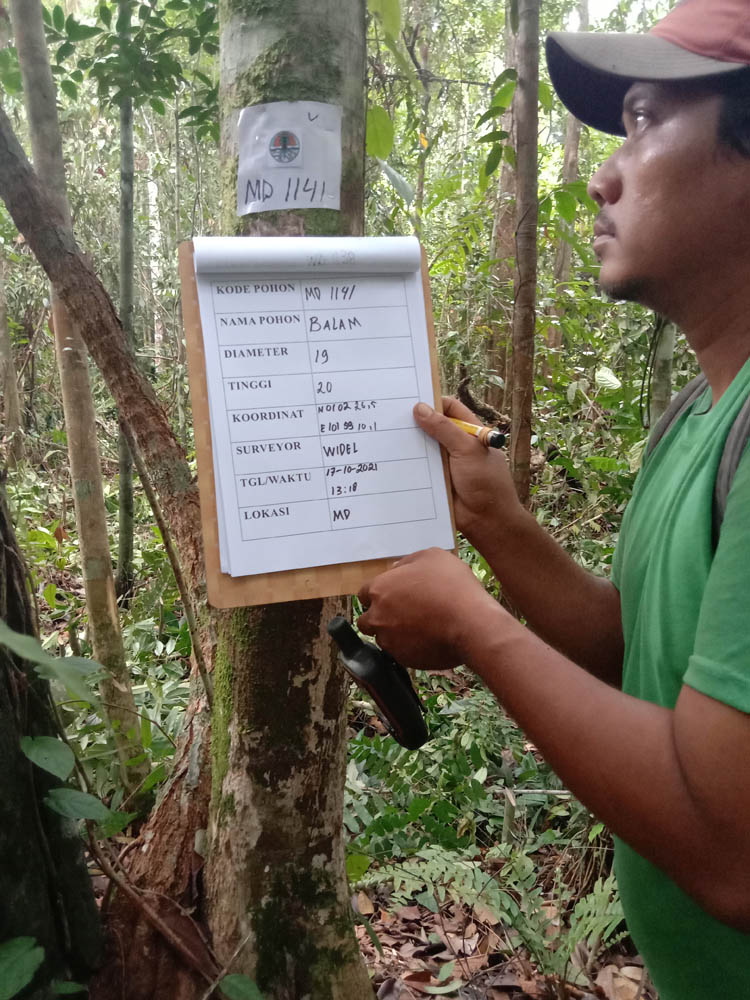 MD 1141
KODE POHON MD 1141
NAMA POHON BALAM
DIAMETER 19
TINGGI 20
KOORDINAT N 01 02 26,5
E 101 99 10,1
SURVEYOR WIDEL
TGL/WAKTU 17-10-2021
13:18
LOKASI MD